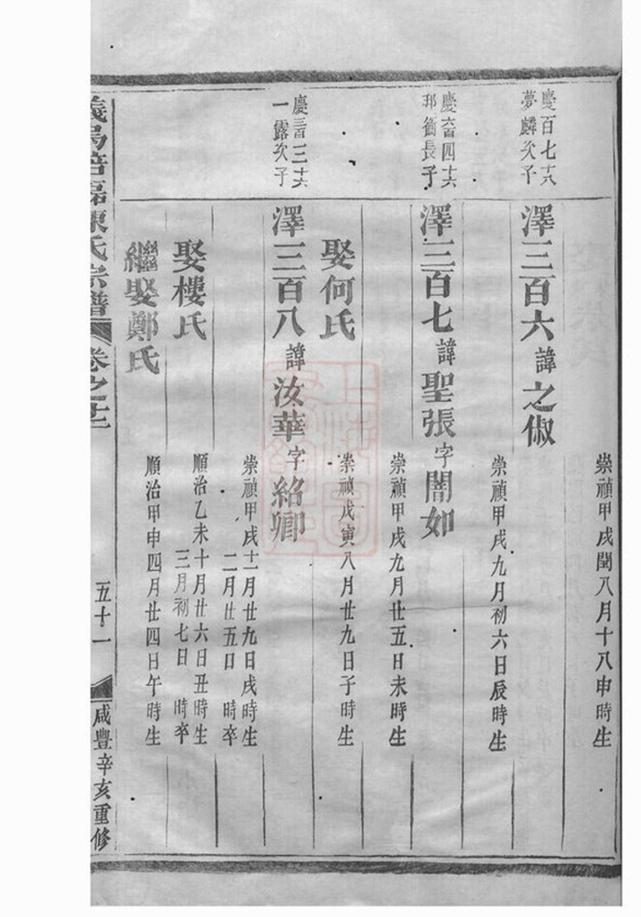 崇禎甲戌閏八月十八申時生
慶百七十八
夢麟次子
澤三百六諱之俶
崇禎甲戌九月初六日辰時生
慶六百四十六
邦簡長子
澤三百七諱聖張字闇如
崇禎甲戌九月廿五日未時生
娶何氏
崇禎戊寅八月廿九日子時生
慶三百三十六
一露次子
澤三百八諱汝華字紹卿
崇禎甲戌十一月廿九日戌時生
二月廿五日　時卒
娶樓氏
順治乙未十月廿六日丑時生
三月初七日　時卒
繼娶鄭氏
順治甲申四月廿四日午時生
義烏倍磊陳氏宗譜
卷之十二
五十一
咸豐辛亥重修